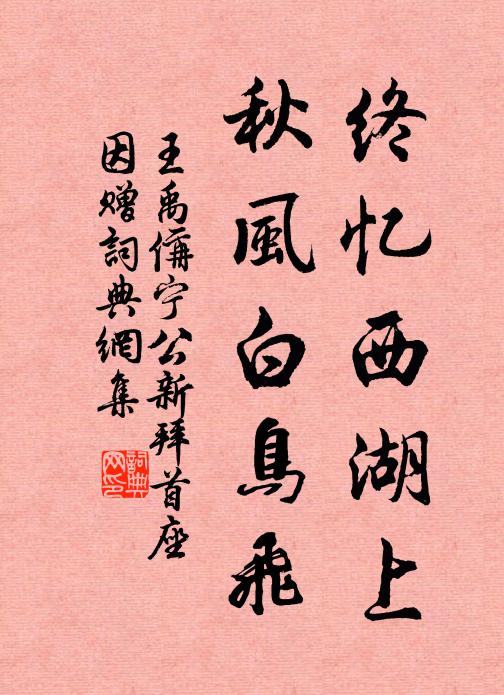 终忆西湖上
秋風白鳥飛
王禹偁宁公新拜首座
因赠詞典網集
詞典
网印